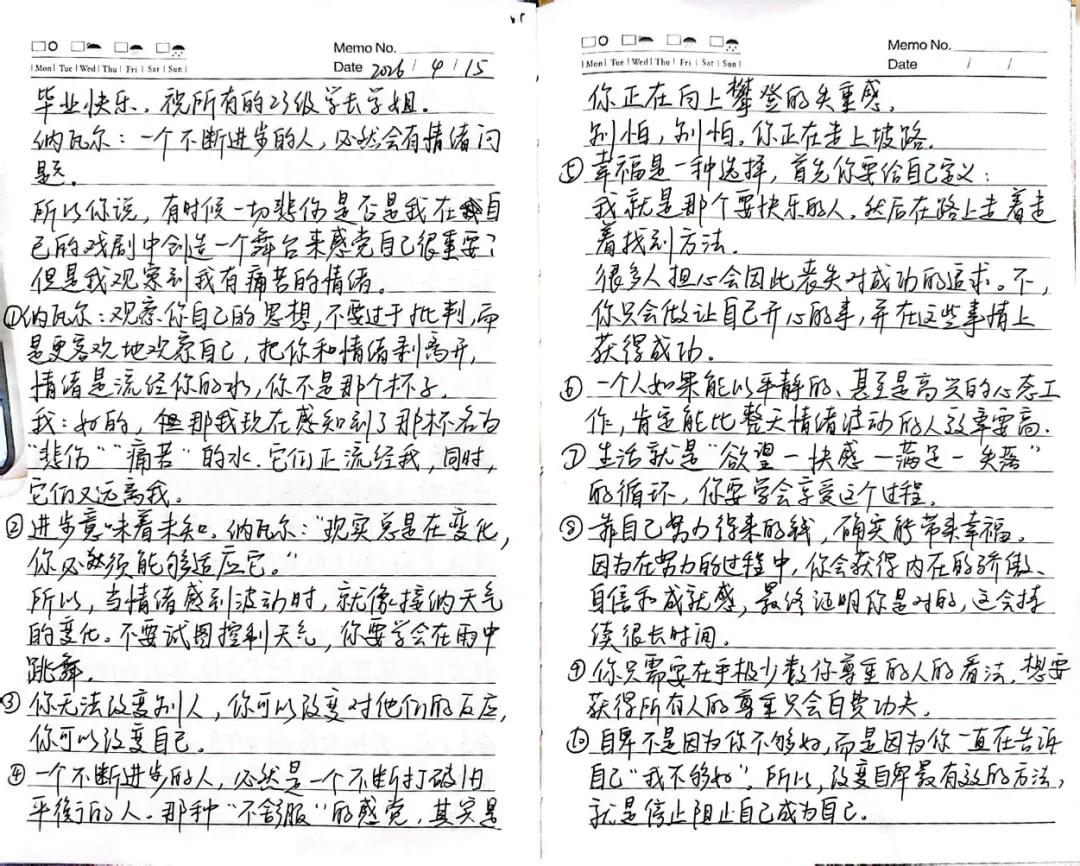 Memo No.
Mon Tue Wed Thu Fri Sat Sun
Date 2026 / 4 / 15
毕业快乐，祝所有的23级学长学姐.
纳瓦尔：一个不断进步的人，必然会有情绪问
题.
所以你说，有时候一切悲伤是否是我在自
己的戏剧中创造一个舞台来感觉自己很重要？
但是我观察到我有痛苦的情绪。
①纳瓦尔：观察你自己的思想，不要过于批判，而
是更客观地观察自己，把你和情绪剥离开，
情绪是流经你的水，你不是那个杯子.
我：好的，但那我现在感知到了那杯名为
“悲伤”“痛苦”的水.它们正流经我，同时，
它们又远离我.
②进步意味着未知。纳瓦尔：“现实总是在变化，
你必须能够适应它。”
所以，当情绪感到波动时，就像接纳天气
的变化。不要试图控制天气，你要学会在雨中
跳舞.
③你无法改变别人，你可以改变对他们的反应，
你可以改变自己.
④一个不断进步的人，必然是一个不断打破旧
平衡的人。那种“不舒服”的感觉，其实是
Memo No.
Mon Tue Wed Thu Fri Sat Sun
Date / /
你正在向上攀登的失重感.
别怕，别怕。你正在走上坡路.
⑤幸福是一种选择，首先你要给自己定义：
我就是那个要快乐的人.然后在路上走着走
着找到方法.
很多人担心会因此丧失对成功的追求。不，
你只会做让自己开心的事，并在这些事情上
获得成功.
⑥一个人如果能以平静的、甚至是高兴的心态工
作，肯定能比整天情绪波动的人效率要高.
⑦生活就是“欲望—快感—满足—失落”
的循环，你要学会享受这个过程.
⑧靠自己努力得来的钱，确实能带来幸福。
因为在努力的过程中，你会获得内在的骄傲、
自信和成就感，最终证明你是对的，这会持
续很长时间.
⑨你只需要在乎极少数你尊重的人的看法.想要
获得所有人的尊重只会白费功夫.
⑩自卑不是因为你不够好，而是因为你一直在告诉
自己“我不够好”。所以，改变自卑最有效的方法，
就是停止阻止自己成为自己.